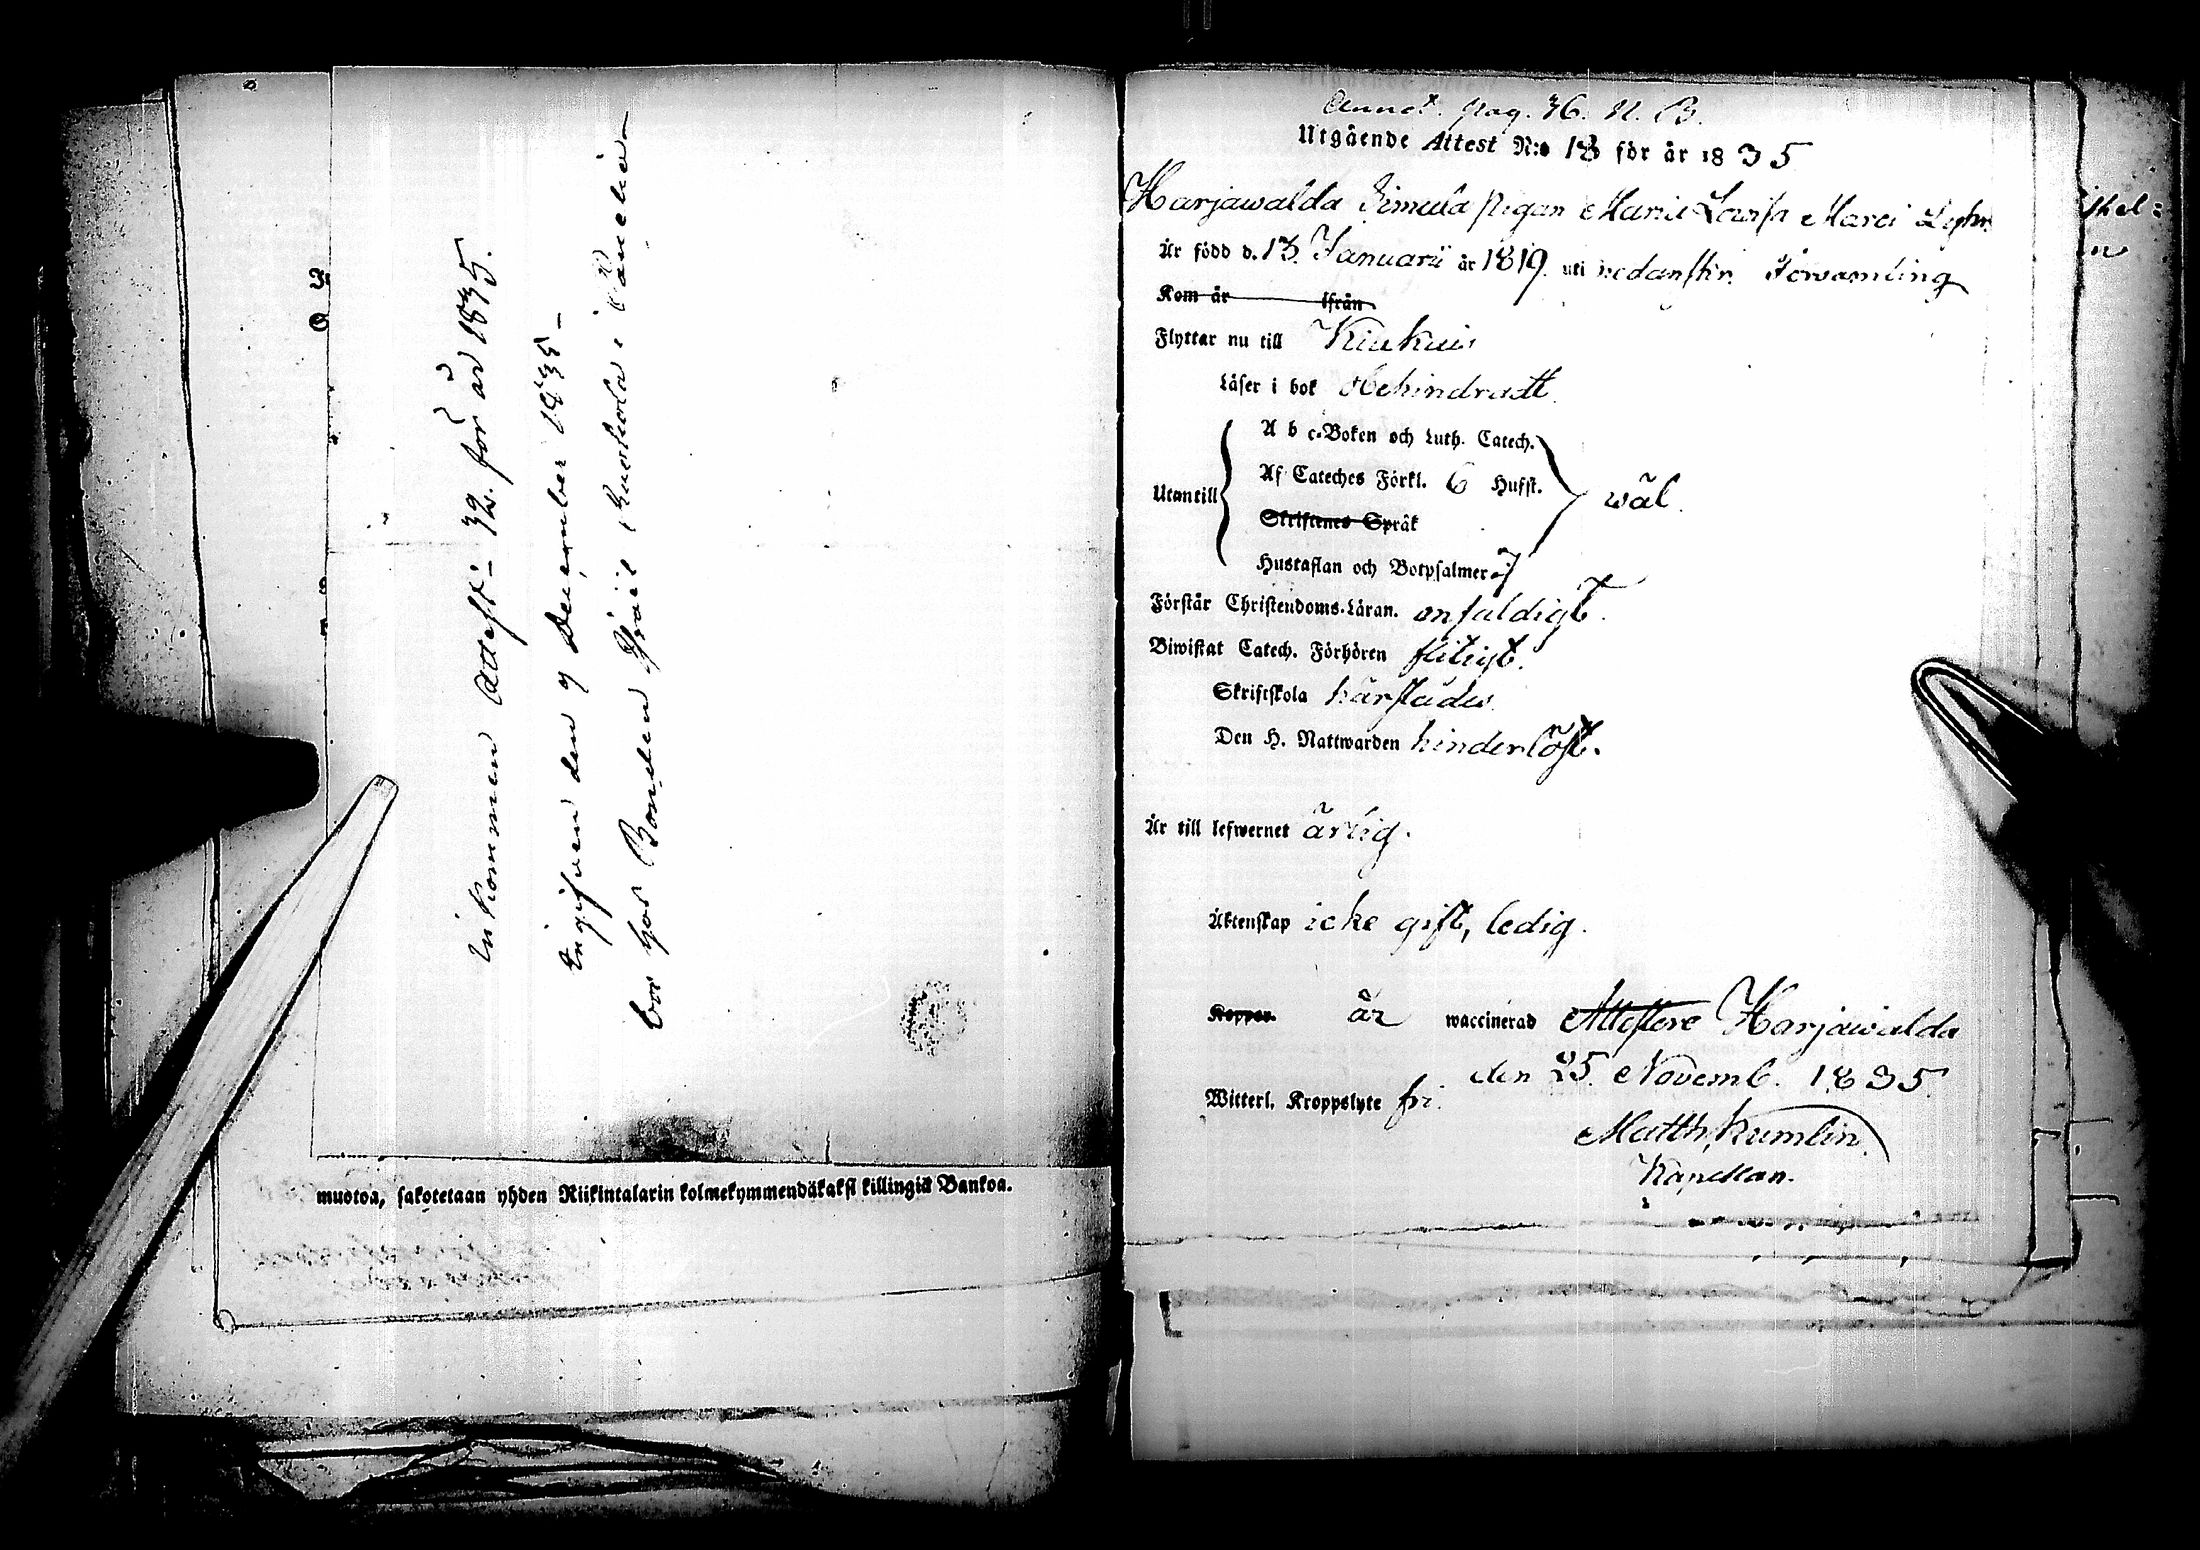 Inkommen Attest 32. för år 1835.
Ingifven den 9 December 1835
bor hos Bonden i Panelia
muotoa, sakotetaan yhden Riikintalarin kolmekymmendäkaksi killingiä Bankoa.
Annot. pag. 36. N. B.
Utgående Attest N:o 18 för år 1835
Harjawalda pigan Maria Lovisa
Är född d. 13. Januarii år 1819. uti nedanskr. Församling
Kom år ifrån
Flyttar nu till Kiukais
Läser i bok Obehindradt
A b c-Boken och Luth. Catech.
Af Cateches Förkl. 6 Hufst.
Utantill wäl.
Skriftenes Språk
Hustaflan och Botpsalmer
Förstår Christendoms-Läran. enfaldigt.
Biwistat Catech. Förhören flitigt.
Skriftskola härstädes
Den H. Nattwarden hinderlöst.
Är till lefwernet ärlig.
Äktenskap icke gift, ledig.
Koppor. är waccinerad Attestere Harjawalda
den 25. Novemb. 1835.
Witterl. Kroppslyte fri.
Matth. Kumlin.
Kapellan.